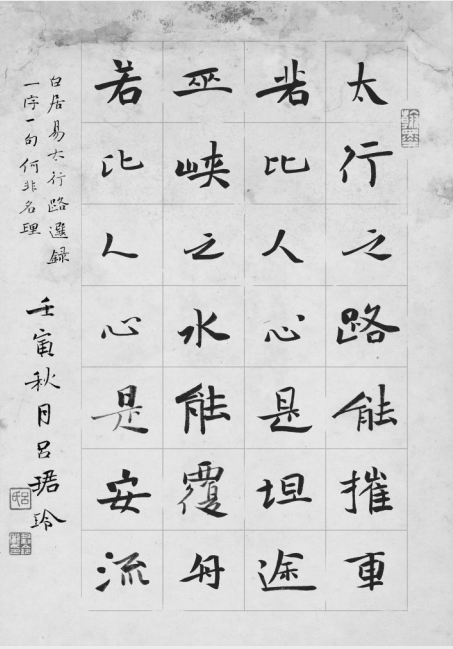 太行之路能摧車
若比人心是坦途
巫峽之水能覆舟
若比人心是安流
白居易太行路選録
一字一句何非名理
壬寅秋月呂珺玲